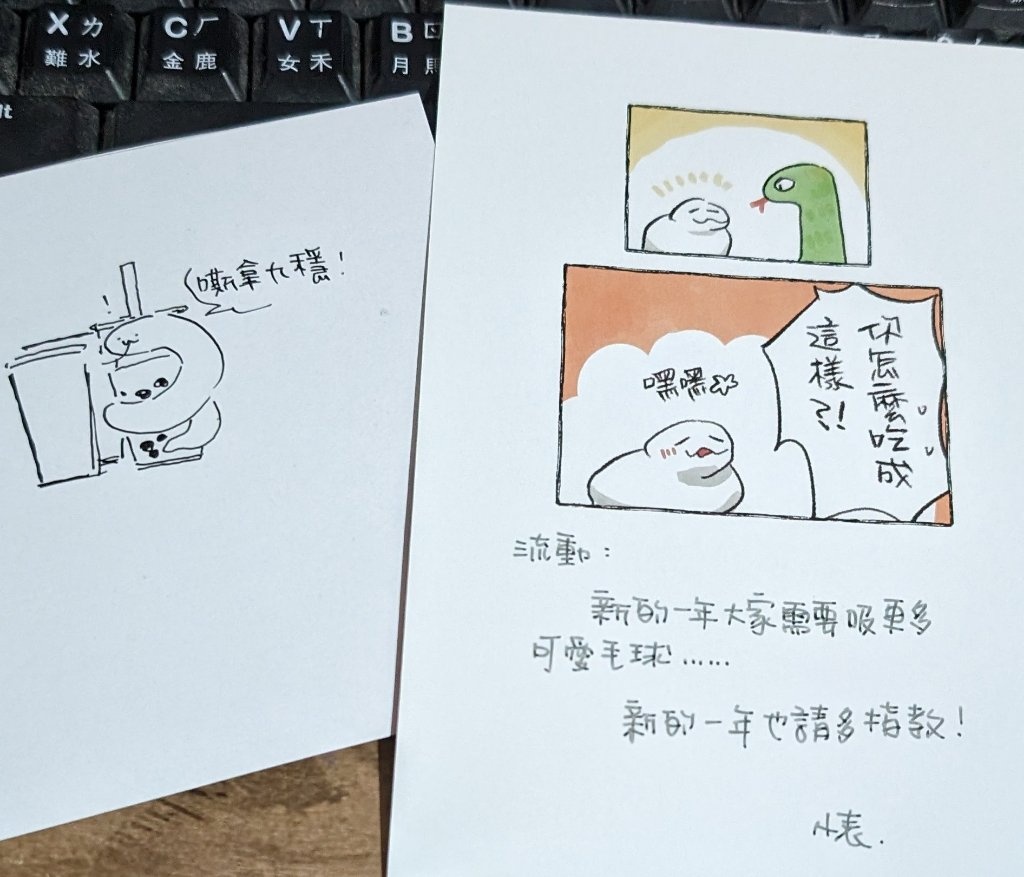 X ㄌ
難 水
C ㄏ
金 鹿
V ㄒ
女 禾
B ㄖ
月
嘶拿九穩！
你怎麼吃成
這樣？！
嘿嘿
流動：
新的一年大家需要吸更多
可愛毛球……
新的一年也請多指教！
小表.